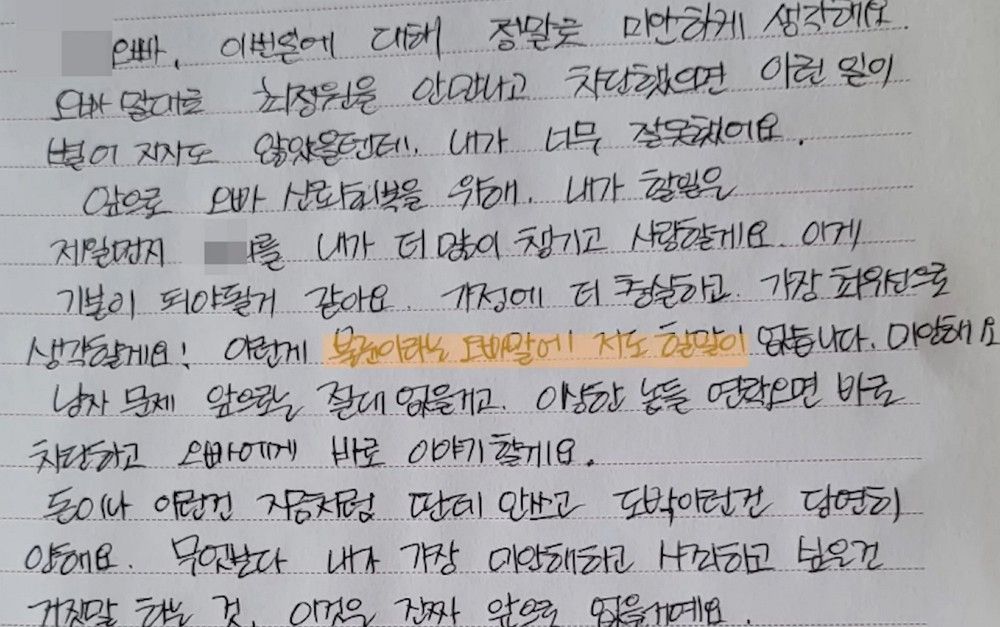 오빠, 이번일에 대해 정말로 미안하게 생각해요.
오빠 말대로 최정원을 안만나고 차단했으면 이런 일이
벌어 지지도 않았을텐데. 내가 너무 잘못했어요.
앞으로 오빠 신뢰회복을 위해. 내가 할일은
제일먼저 를 내가 더 많이 챙기고 사랑할게요. 이게
기본이 되야될거 같아요. 가정에 더 충실하고. 가장 최우선으로
생각할게요! 이런게 본분이라는 오빠말에 저도 할말이 없습니다. 미안해요
남자 문제 앞으로는 절대 없을거고. 이상한 놈들 연락오면 바로
차단하고 오빠에게 바로 이야기할게요.
돈이나 이런건 지금처럼 딴데 안쓰고 도박이런건 당연히
안해요. 무엇보다 내가 가장 미안해하고 사과하고 싶은건
거짓말 하는 것. 이것은 진짜 앞으로 없을거예요.